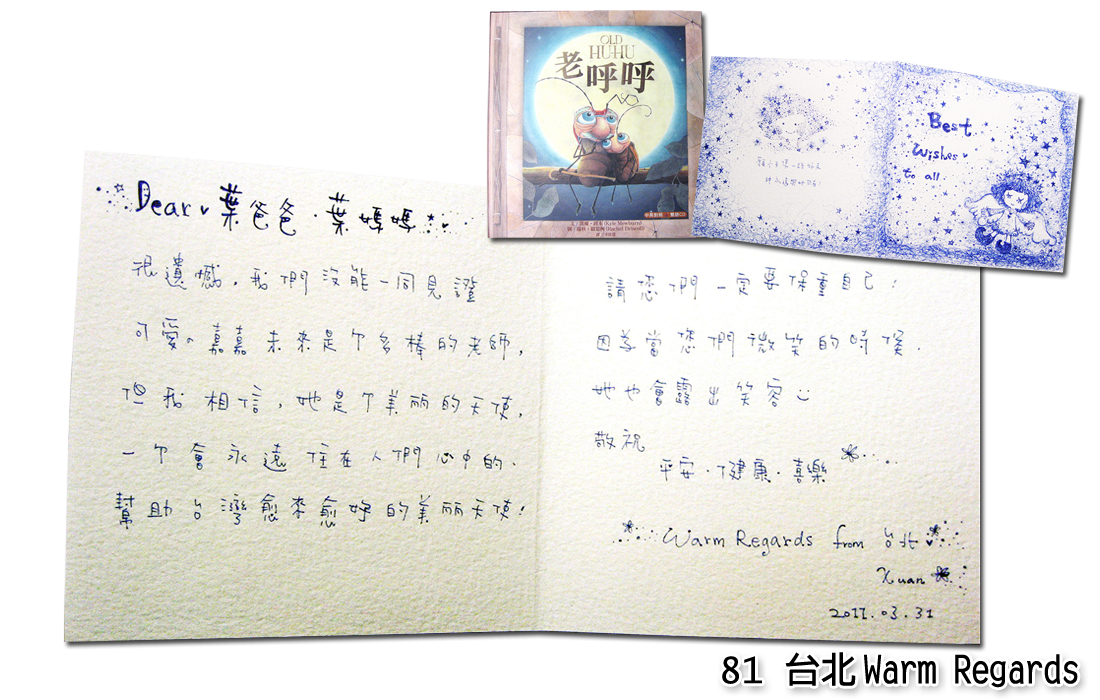 OLD
HU-HU
老呼呼
Best
Wishes
to all
Dear 葉爸爸.葉媽媽
很遺憾,我們沒能一同見證
可愛。嘉嘉未來是个多棒的老師,
但我相信,她是个美丽的天使,
一个會永遠住在人們心中的、
幫助台灣愈來愈好的美丽天使!
請您們一定要保重自己!
因為當您們微笑的時候.
她也會露出笑容
敬祝
平安.健康.喜樂
Warm Regards from 台北
Xuan
2011.03.31
81 台北 Warm Regards